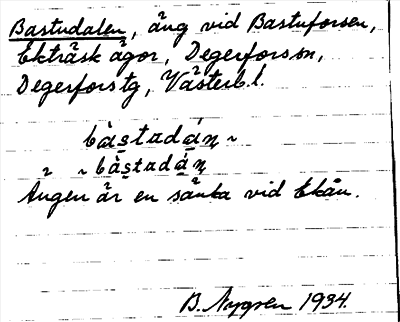 Bastudalen, äng vid Bastuforsen,
Ekträsk ägor, Degerfors sn,
Degerfors tg, Västerb. l.
bàstadáɳ ~
~ bàstadáɳ
Ängen är en sänka vid Ekån.
B. Nygren 1934.